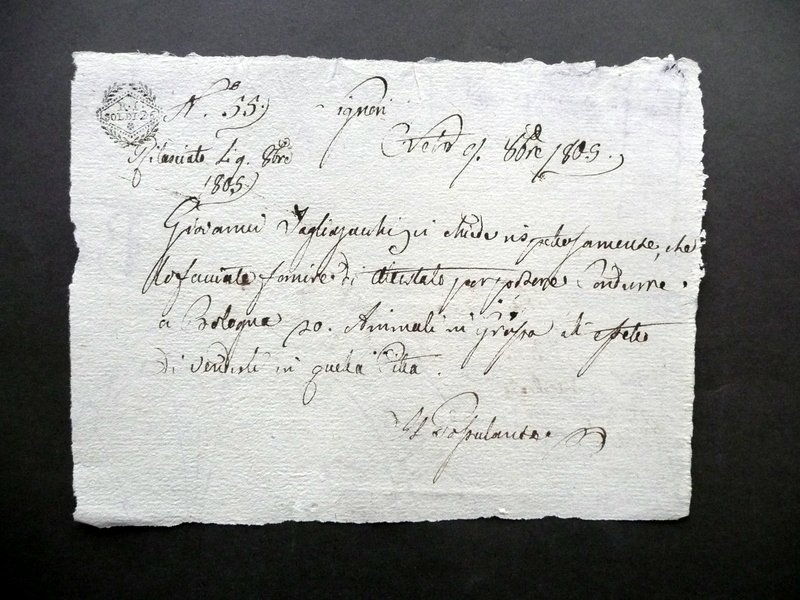 R. I.
SOLDI 2
N.° 55.
Signori
9. 8bre 1805.
Rilasciato li 9. 8bre
1805
Giovanni Tagliazucchi vi chiede rispettosamente, che
lo facciate fornire di attestato per potere Condurre
a Bologna 20. Animali in Groppa al effetto
di venderli in quella Città.
Il Postulante